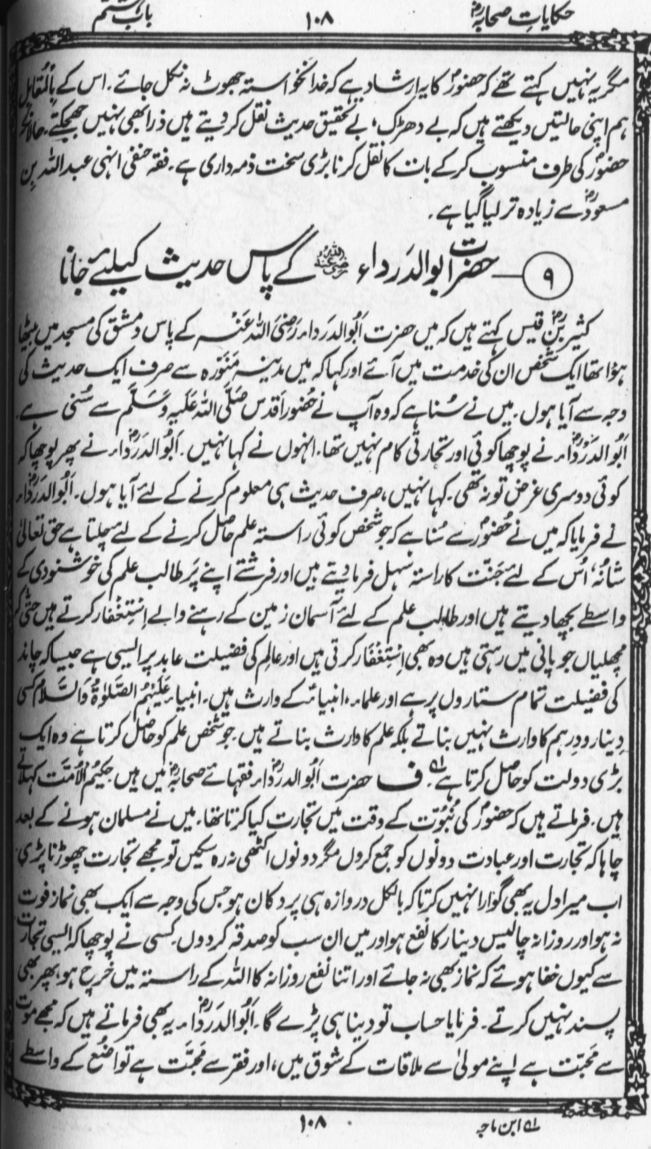 حکایاتِ صحابہؓ ۱۰۸ باب ہشتم
مگر یہ نہیں کہتے تھے کہ حضورؐ کا یہ ارشاد ہے کہ خدانخواستہ جھوٹ نہ نکل جائے۔ اس کے بالمقابل
ہم اپنی حالتیں دیکھتے ہیں کہ بے دھڑک، بے تحقیق حدیث نقل کر دیتے ہیں ذرا بھی نہیں جھجکتے۔ حالانکہ
حضورؐ کی طرف منسوب کرکے بات کا نقل کرنا بڑی سخت ذمہ داری ہے۔ فقہ حنفی انہی عبداللہ بن
مسعودؓ سے زیادہ تر لیا گیا ہے۔
۹ ــ حضرت ابوالدرداء رضی اللہ عنہ کے پاس حدیث کیلئے جانا
کثیر بنؒ قیس کہتے ہیں کہ میں حضرت ابُوالدَرداء رَضِیَ اللہُ عَنْہُ کے پاس دمشق کی مسجد میں بیٹھا
ہوا تھا ایک شخص ان کی خدمت میں آئے اور کہا کہ میں مدینہ مُنَوّرہ سے صرف ایک حدیث کی
وجہ سے آیا ہوں۔ میں نے سُنا ہے کہ وہ آپ نے حُضورِ اَقدس صَلَّی اللہُ عَلَیْہِ وَسَلَّم سے سُنی ہے۔
ابُوالدَردَاءؓ نے پوچھا کوئی اور تجارتی کام نہیں تھا۔ انہوں نے کہا نہیں۔ ابُوالدَردَاءؓ نے پھر پوچھا کہ
کوئی دوسری غرض تو نہ تھی۔ کہا نہیں، صرف حدیث ہی معلوم کرنے کے لئے آیا ہوں۔ ابُوالدَردَاءؓ
نے فرمایا کہ میں نے حُضورؐ سے سُنا ہے کہ جو شخص کوئی راستہ علم حاصل کرنے کے لئے چلتا ہے حق تعالیٰ
شانُہٗ اُس کے لئے جنّت کا راستہ سہل فرما دیتے ہیں اور فرشتے اپنے پَر طالب علم کی خوشنودی کے
واسطے بچھا دیتے ہیں اور طالبِ علم کے لئے آسمان زمین کے رہنے والے اِسْتِغْفار کرتے ہیں حتّٰی کہ
مچھلیاں جو پانی میں رہتی ہیں وہ بھی اِسْتِغْفَار کرتی ہیں اور عالِم کی فضیلت عابد پر ایسی ہے جیسا کہ چاند
کی فضیلت تمام ستاروں پر ہے اور علماء، انبیاءؑ کے وارث ہیں۔ انبیاء عَلَیْہِمُ الصَّلوٰۃُ وَالسَّلَام کسی
دِینار و دِرہم کا وارث نہیں بناتے بلکہ علم کا وارث بناتے ہیں۔ جو شخص علم کو حاصل کرتا ہے وہ ایک
بڑی دولت کو حاصل کرتا ہے۱؎۔ ف حضرت ابُوالدَردَاءؓ فقہائے صحابہؓ میں ہیں۔ حکیمُ الْاُمّت کہلاتے
ہیں۔ فرماتے ہیں کہ حضورؐ کی نُبُوّت کے وقت میں تجارت کیا کرتا تھا۔ میں نے مسلمان ہونے کے بعد
چاہا کہ تجارت اور عبادت دونوں کو جمع کروں مگر دونوں اکٹھی نہ رہ سکیں تو مجھے تجارت چھوڑنا پڑی۔
اب میرا دل یہ بھی گوارا نہیں کرتا کہ بالکل دروازہ ہی پر دکان ہو جس کی وجہ سے ایک بھی نماز فوت
نہ ہو اور روزانہ چالیس دینار کا نفع ہو اور میں ان سب کو صدقہ کر دوں۔ کسی نے پوچھا کہ ایسی تجارت
سے کیوں خفا ہوئے کہ نماز بھی نہ جائے اور اتنا نفع روزانہ کا اللہ کے راستہ میں خرچ ہو، پھر بھی
پسند نہیں کرتے۔ فرمایا حساب تو دینا ہی پڑے گا۔ ابُوالدَردَاءؓ یہ بھی فرماتے ہیں کہ مجھے موت
سے مَحبّت ہے اپنے مولیٰ سے ملاقات کے شوق میں، اور فقر سے مَحبّت ہے تواضُع کے واسطے
۱؎ ابن ماجہ ۱۰۸